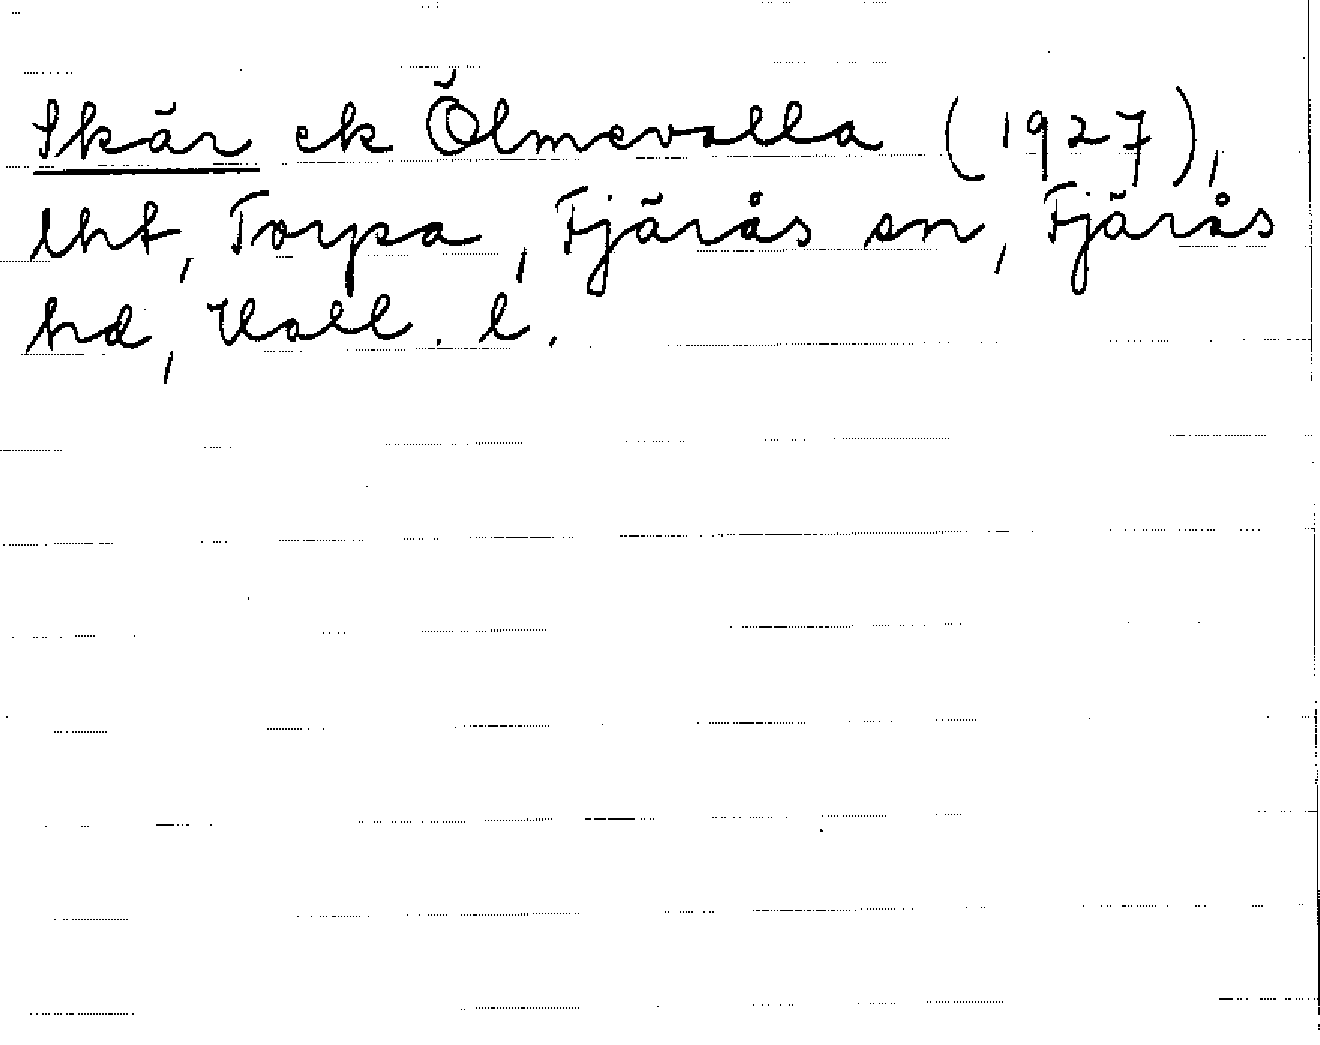 Skär ek Ölmevalla (1927),
lht, Torpa, Fjärås sn, Fjärås
hd, Hall. l.